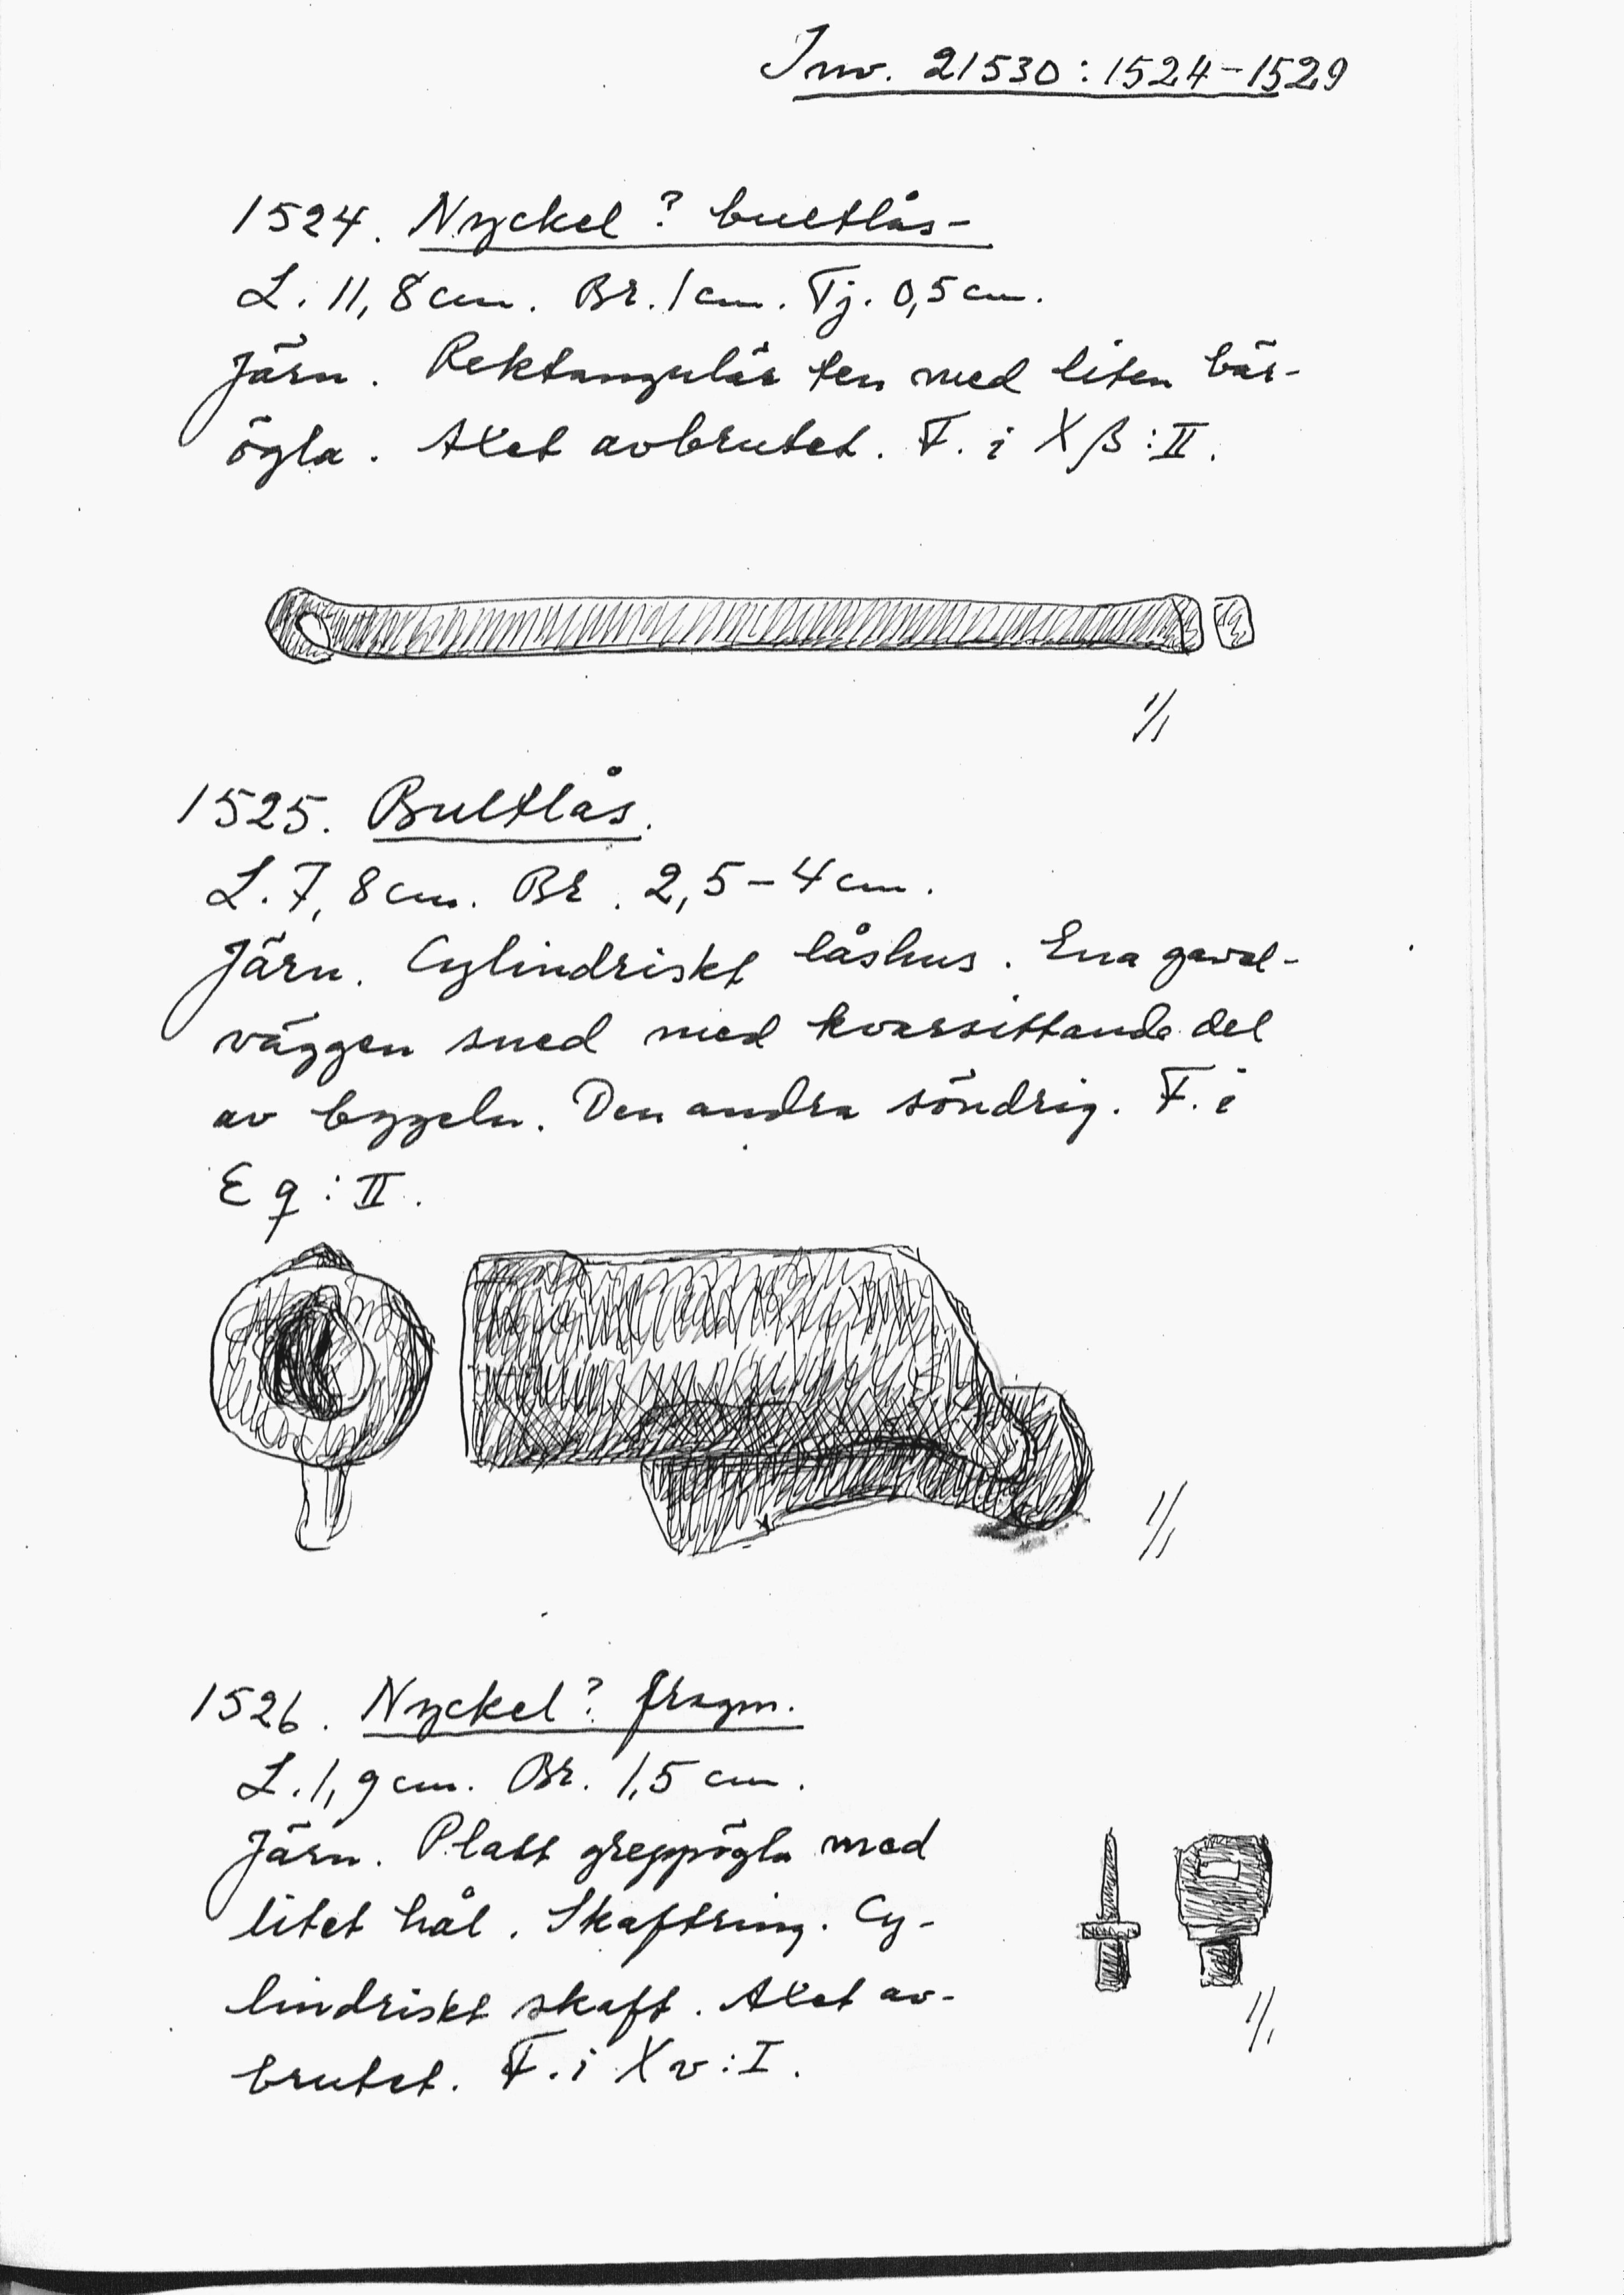 Inv. 21530:1524-1529
1524. Nyckel? bultlås-
L. 11,8 cm. Br. 1 cm. Tj. 0,5 cm.
Järn. Rektangulär ten med liten bär-
ögla. Axet avbrutet. F. i Xβ:II.
1/1
1525. Bultlås.
L. 7,8 cm. Br. 2,5-4 cm.
Järn. Cylindriskt låshus. Ena gavel-
väggen sned med kvarsittande del
av bygeln. Den andra söndrig. F. i
Eq:II.
1/1
1526. Nyckel? fragm.
L. 1,9 cm. Br. 1,5 cm.
Järn. Platt greppögla med
litet hål. Skaftring. Cy-
lindriskt skaft. Axet av-
brutet. F. i Xv:I.
1/1